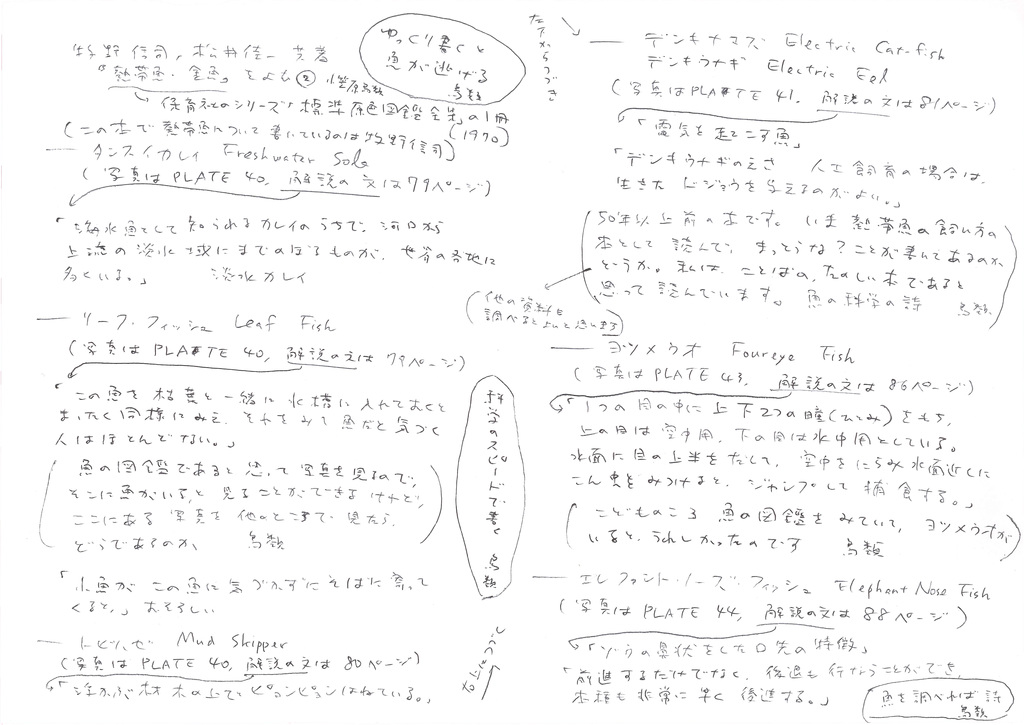 牧野信司, 松井佳一 共著
「熱帯魚・金魚」をよむ② 小笠原鳥類
保育社のシリーズ「標準原色図鑑全集」の1冊
(1970)
(この本で熱帯魚について書いているのは牧野信司)
ゆっくり書くと
魚が逃げる
鳥類
― タンスイカレイ Freshwater Sole
(写真は PLATE 40, 解説の文は79ページ)
「淡水魚として知られるカレイのうちで、河口から
上流の淡水域にまでのぼるものが、世界の各地に
多くいる。」 淡水カレイ
― リーフ・フィッシュ Leaf Fish
(写真は PLATE 40, 解説の文は79ページ)
「この魚を枯葉と一緒に水槽に入れておくと
まったく同様にみえ、それをみて魚だと気づく
人はほとんどない。」
(魚の図鑑であると思って写真を見るので、
そこに魚がいる、と見ることができるけれど、
ここにある写真を他のところで見たら、
どうであるのか、 鳥類)
「小魚がこの魚に気づかずにそばに寄って
くると、」おそろしい
― トビハゼ Mud Skipper
(写真は PLATE 40, 解説の文は80ページ)
「浮かぶ材木の上でピョンピョンはねている。」
科学のスピードで書く 鳥類
右上につづく
左下からつづき
― デンキナマズ Electric Cat-fish
デンキウナギ Electric Eel
(写真は PLATE 41, 解説の文は81ページ)
「電気を起こす魚」
「デンキウナギのえさ 人工飼育の場合は、
生きたドジョウを与えるのがよい。」
(50年以上前の本です。いま熱帯魚の飼い方の
本として読んで、まっとうな?ことが書いてあるのか
どうか。私は、ことばの、たのしい本であると
思って読んでいます。魚の科学の詩 鳥類)
(他の資料も
調べるとよいと思います)
― ヨツメウオ Foureye Fish
(写真は PLATE 43, 解説の文は86ページ)
「1つの目の中に上下2つの瞳(ひとみ)をもち、
上の目は空中用、下の目は水中用としている。
水面に目の上半をだして、空中をにらみ水面近くに
こん虫をみつけると、ジャンプして捕食する。」
(こどものころ魚の図鑑をみていて、ヨツメウオが
いると、うれしかったのです 鳥類)
― エレファント・ノーズ・フィッシュ Elephant Nose Fish
(写真は PLATE 44, 解説の文は88ページ)
「ゾウの鼻状をした口先の特徴」
「前進するだけでなく、後進も行なうことができ、
本種も非常に早く後進する。」
魚を調べれば詩
鳥類